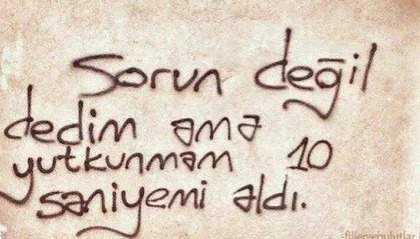 Sorun değil
dedim ama
yutkunmam 10
saniyemi aldı.
-fillervebulutlar